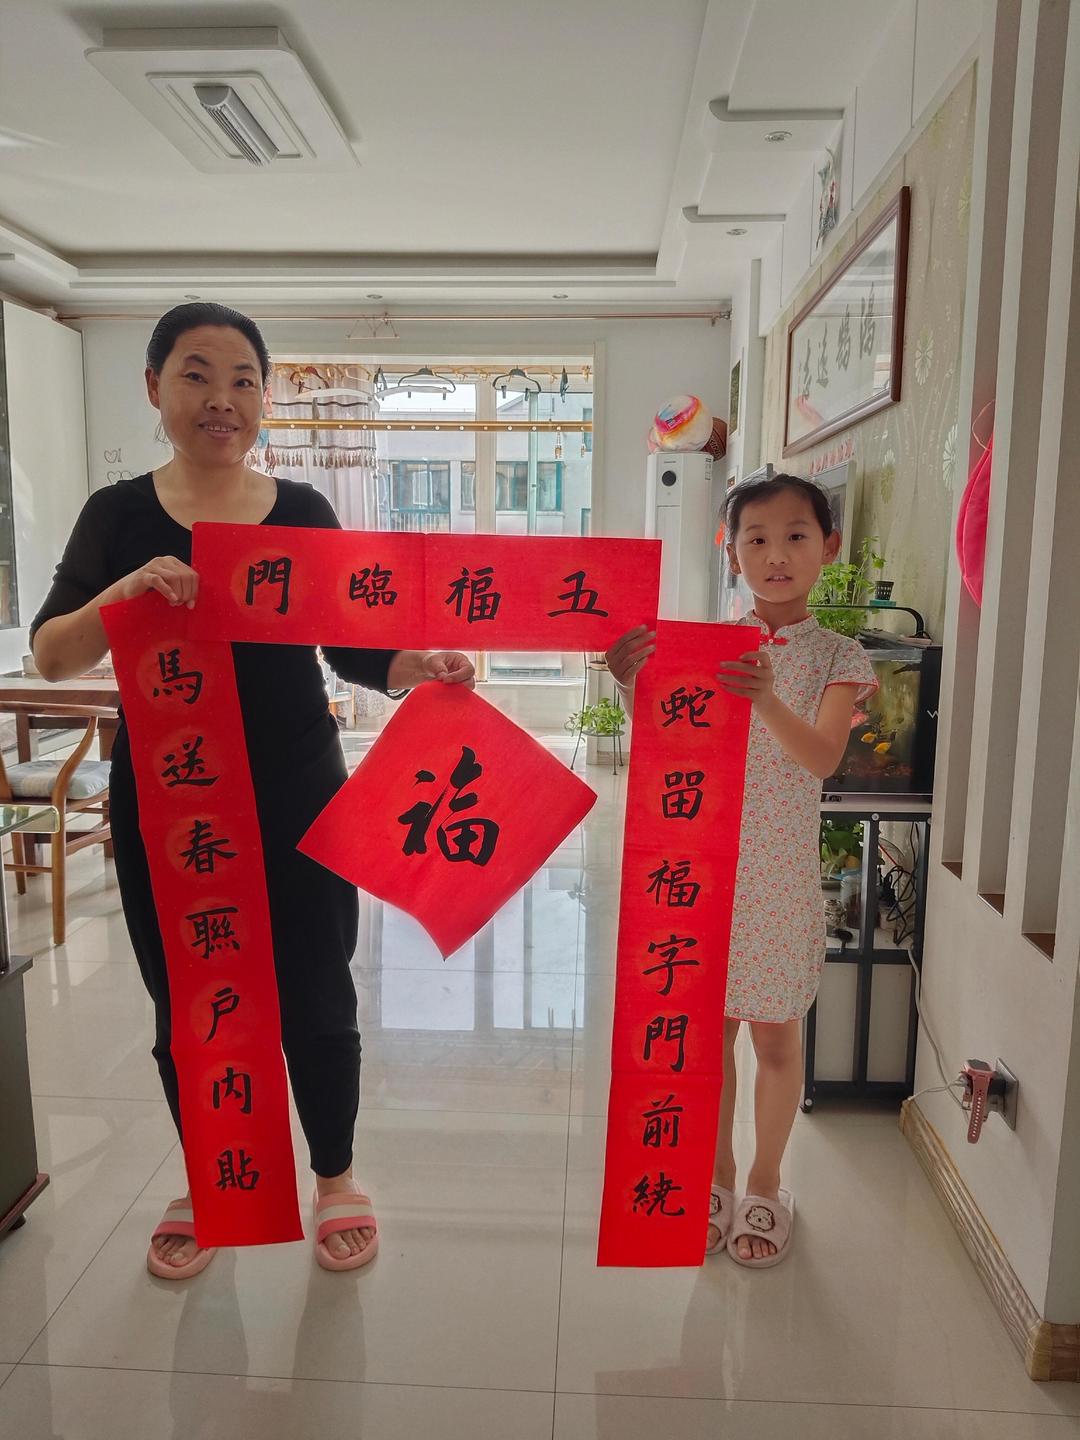 五福臨門
蛇畱福字門前繞
馬送春聯戶內貼
福